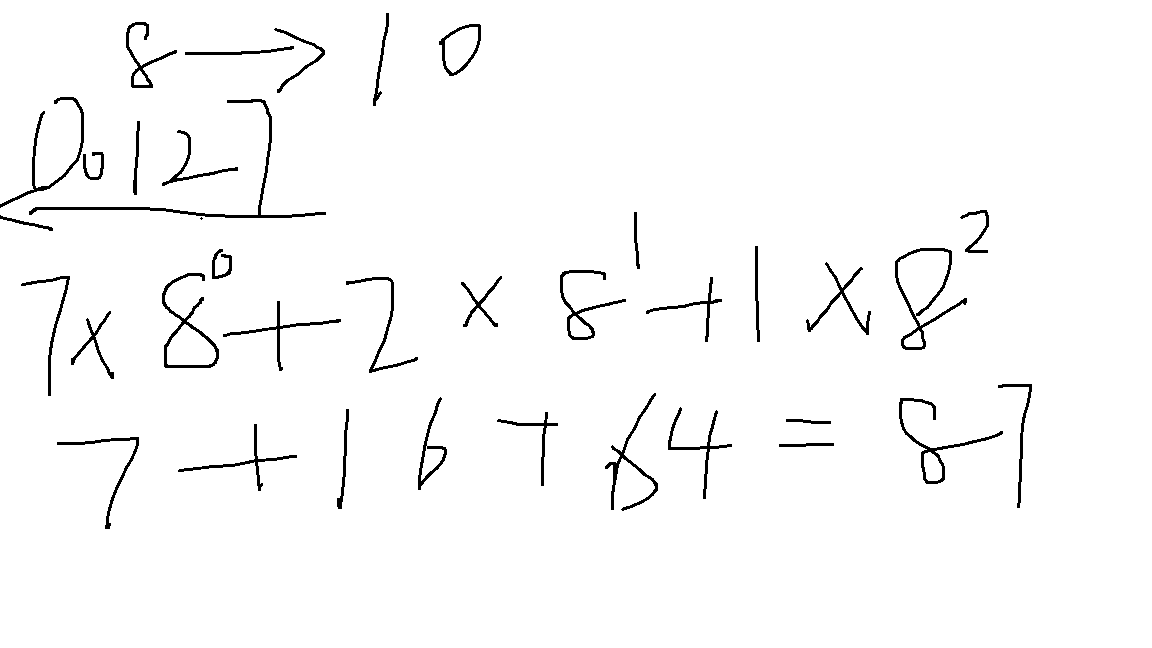 8 → 10
0o127
7 × 8⁰ + 2 × 8¹ + 1 × 8²
7 + 16 + 64 = 87